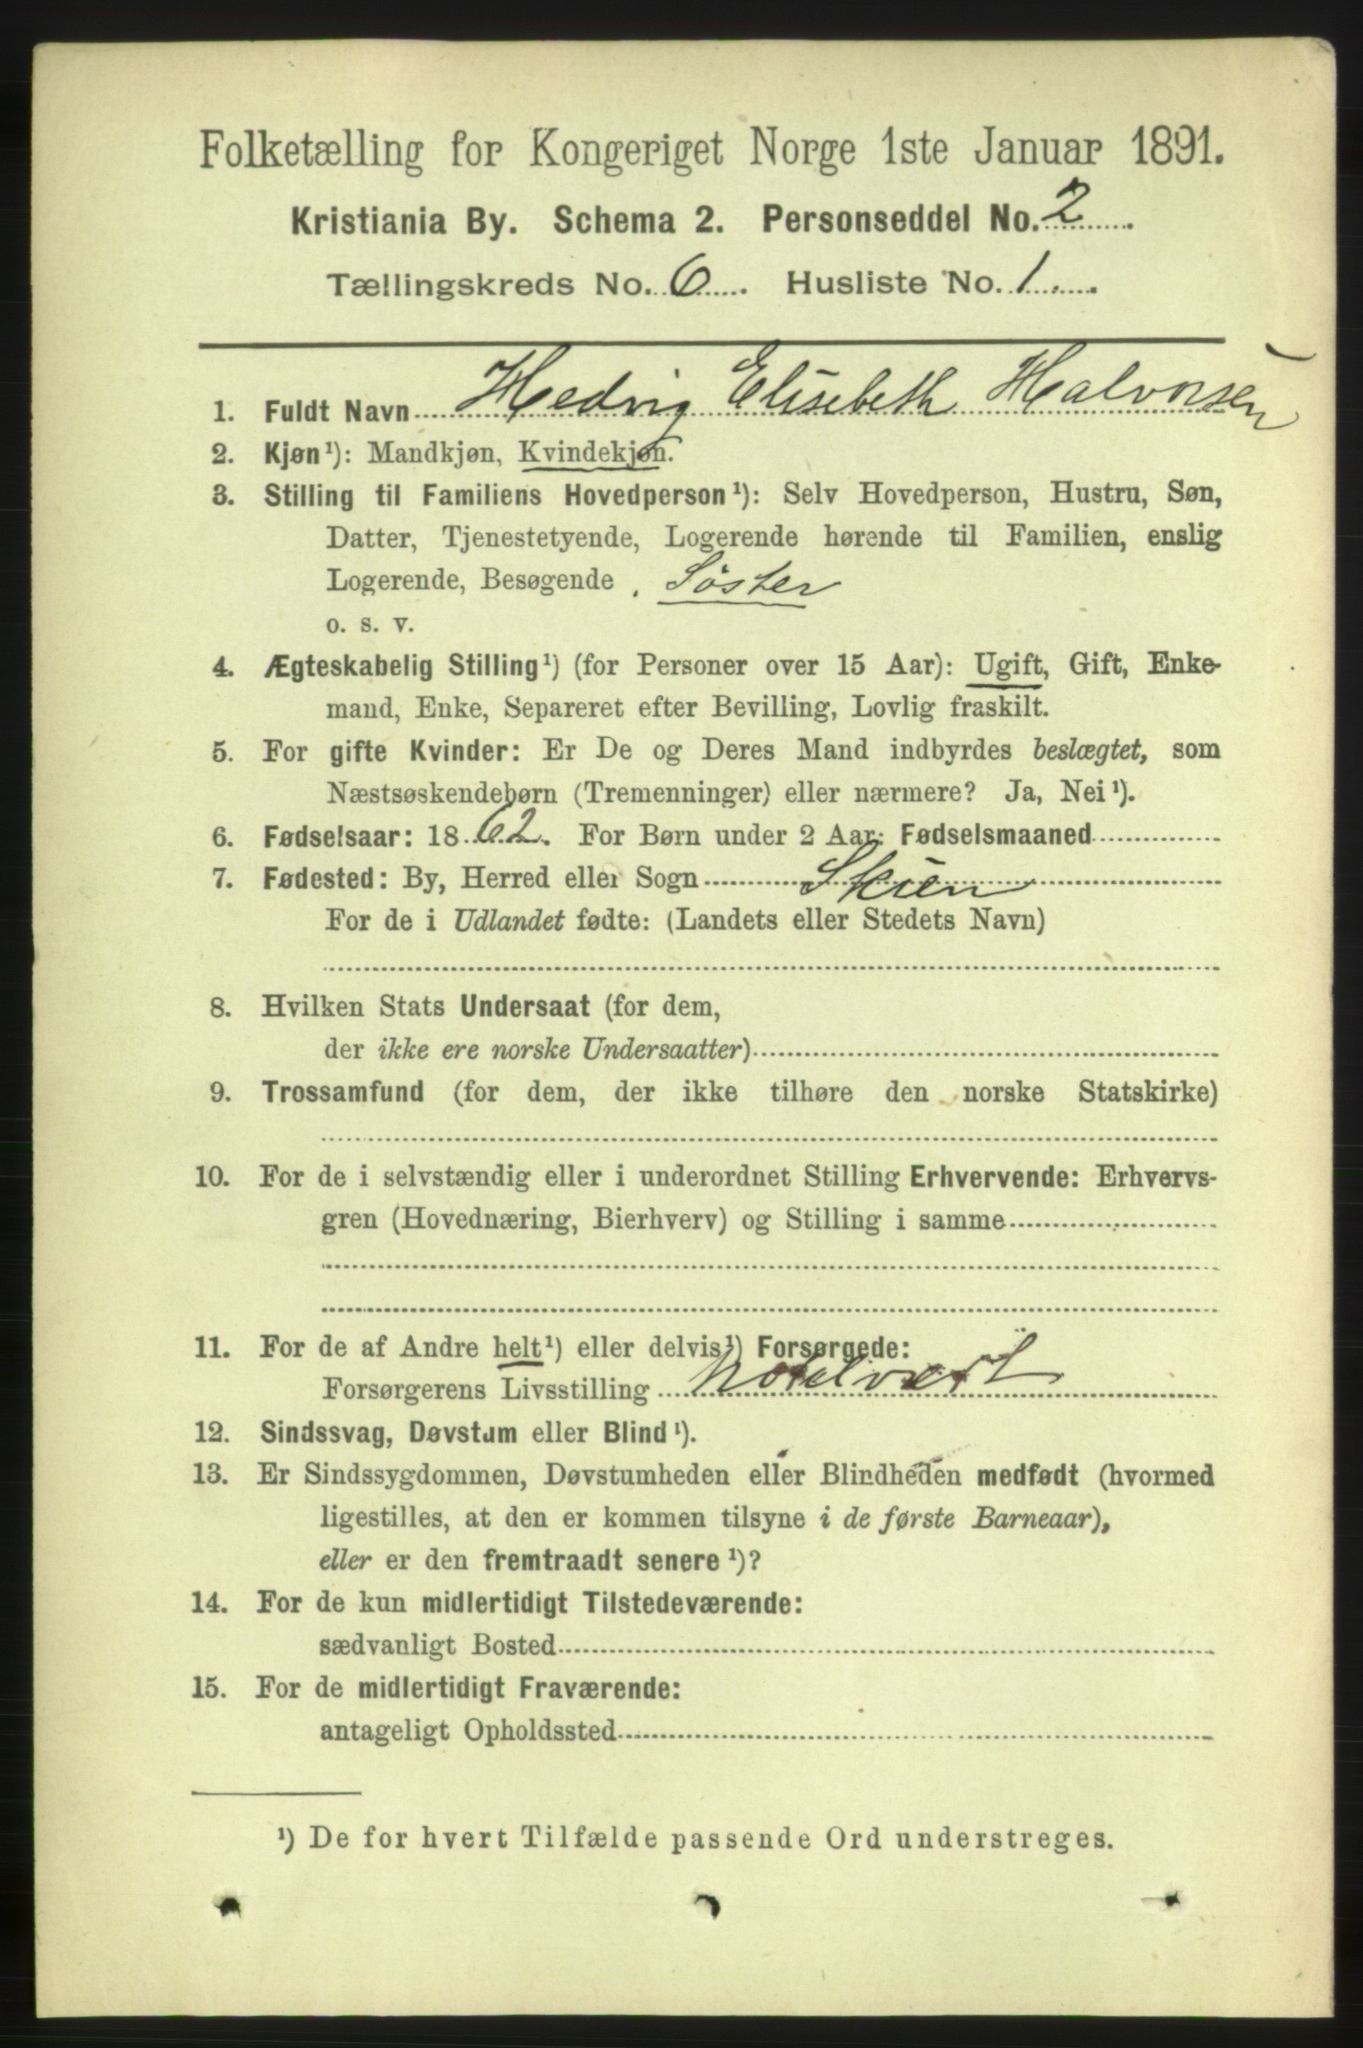 Folketælling for Kongeriget Norge 1ste Januar 1891.
Kristiania By. Schema 2. Personseddel No. 2
Tællingskreds No. 6. Husliste No. 1
1. Fuldt Navn Hedvig Elisebeth Halvorsen
2. Kjøn¹): Mandkjøn, Kvindekjøn.
3. Stilling til Familiens Hovedperson¹): Selv Hovedperson, Hustru, Søn,
Datter, Tjenestetyende, Logerende hørende til Familien, enslig
Logerende, Besøgende . Söster
o. s. v.
4. Ægteskabelig Stilling¹) (for Personer over 15 Aar): Ugift, Gift, Enke-
mand, Enke, Separeret efter Bevilling, Lovlig fraskilt.
5. For gifte Kvinder: Er De og Deres Mand indbyrdes beslægtet, som
Næstsøskendebørn (Tremenninger) eller nærmere? Ja, Nei¹).
6. Fødselsaar: 1862. For Børn under 2 Aar: Fødselsmaaned
7. Fødested: By, Herred eller Sogn Skien
For de i Udlandet fødte: (Landets eller Stedets Navn)
8. Hvilken Stats Undersaat (for dem,
der ikke ere norske Undersaatter)
9. Trossamfund (for dem, der ikke tilhøre den norske Statskirke)
10. For de i selvstændig eller i underordnet Stilling Erhvervende: Erhvervs-
gren (Hovednæring, Bierhverv) og Stilling i samme
11. For de af Andre helt¹) eller delvis¹) Forsørgede:
Forsørgerens Livsstilling hotelvært
12. Sindssvag, Døvstum eller Blind¹).
13. Er Sindssygdommen, Døvstumheden eller Blindheden medfødt (hvormed
ligestilles, at den er kommen tilsyne i de første Barneaar),
eller er den fremtraadt senere¹)?
14. For de kun midlertidigt Tilstedeværende:
sædvanligt Bosted
15. For de midlertidigt Fraværende:
antageligt Opholdssted
¹) De for hvert Tilfælde passende Ord understreges.